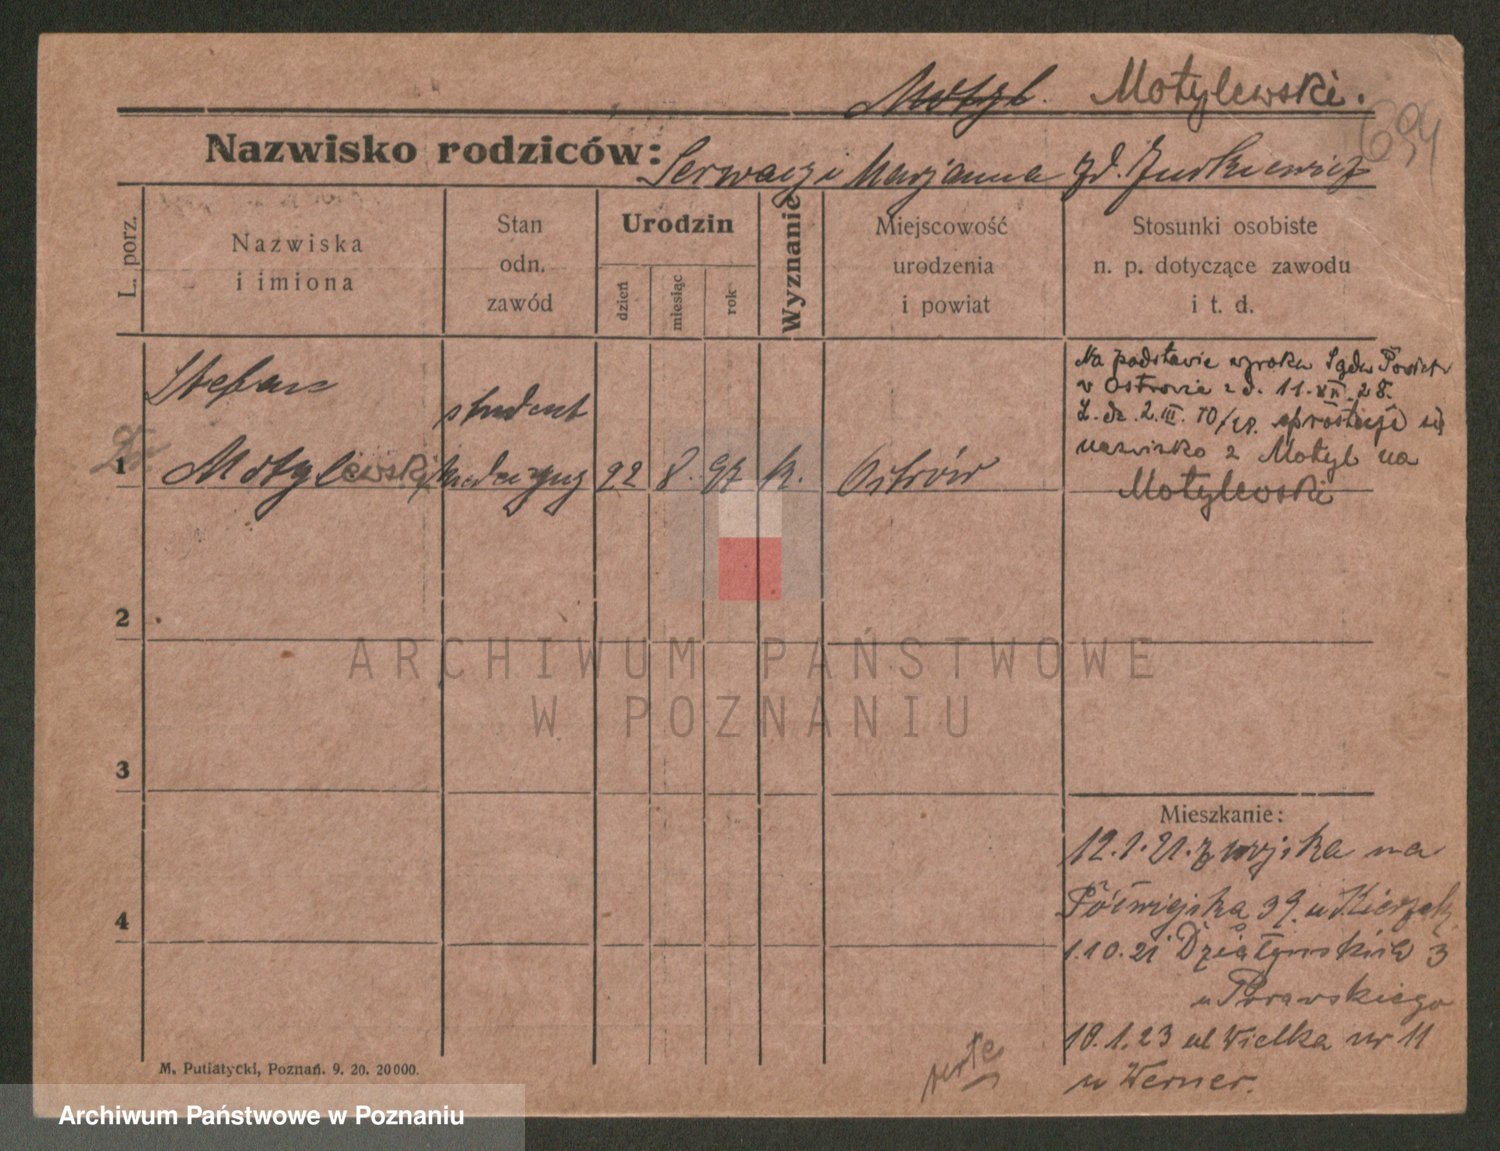 Motyl. Motylewski.
694
Nazwisko rodziców: Serwacy i Marjanna zd. Jurkiewicz
L. porz.
Nazwiska
i imiona
Stan
odn.
zawód
Urodzin
dzień
miesiąc
rok
Wyznanie
Miejscowość
urodzenia
i powiat
Stosunki osobiste
n. p. dotyczące zawodu
i t. d.
Stefan
student
1 Motylewski medycyny 22 8. 97 k. Ostrów
Na podstawie wyroku Sądu Powiat
w Ostrowie z d. 11.XII.28.
L. dz. 2.III. 10/28. sprostuje się
nazwisko z Motyl na
Motylewski
2
ARCHIWUM PAŃSTWOWE
W POZNANIU
3
Mieszkanie:
12.1.21. z wojska na
Półwiejska 39. u
4
1.10.21 Działyńskich 3
u
18.1.23 ul Wielka nr 11
u Werner.
M. Putiatycki, Poznań. 9. 20. 20000.
Archiwum Państwowe w Poznaniu